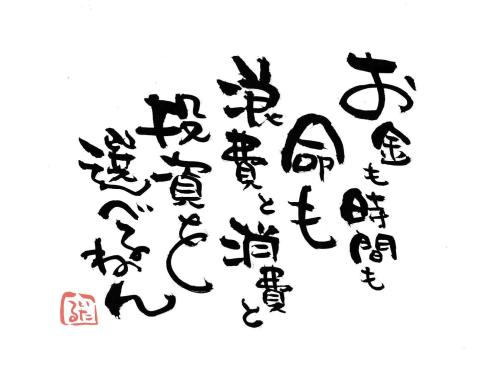 お金も時間も
命も
浪費と消費と
投資と
選べるねん